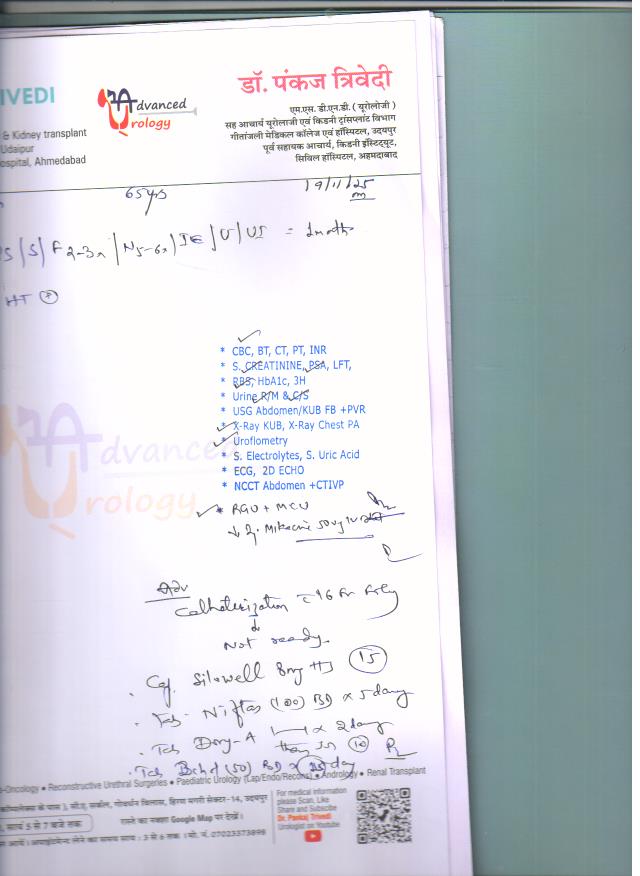 IVEDI
Advanced
Urology
डॉ. पंकज त्रिवेदी
& Kidney transplant
Udaipur
ospital, Ahmedabad
एम.एस. डी.एन.बी. ( यूरोलोजी )
सह आचार्य यूरोलाजी एवं किडनी ट्रांसप्लांट विभाग
गीतांजली मेडिकल कॉलेज एवं हॉस्पिटल, उदयपुर
पूर्व सहायक आचार्य, किडनी इंस्टिट्यूट,
सिविल हॉस्पिटल, अहमदाबाद
65yrs
19/11/25
/S/F 2-3x/N5-6x/IE/U/UI =
HT +
* CBC, BT, CT, PT, INR
* S. CREATININE, PSA, LFT,
* RBS, HbA1c, 3H
* Urine R/M & C/S
* USG Abdomen/KUB FB +PVR
* X-Ray KUB, X-Ray Chest PA
* Uroflometry
* S. Electrolytes, S. Uric Acid
* ECG, 2D ECHO
* NCCT Abdomen +CTIVP
* RGU + MCU
Advanced
Urology
Adv
Catheterization 16 Fr
Not ready
Cap. Silowell 8mg HS 15
Tab. Niftas (100) BD x 5 day
Tab x 2 day
10
Tab (50) BD x day
-Oncology • Reconstructive Urethral Surgeries • Paediatric Urology (Lap/Endo/Recons) • Andrology • Renal Transplant
कॉम्पलेक्स के पास ), सी.ए. सर्कल, गोवर्धन विलास, हिरण मगरी सेक्टर-14, उदयपुर
, सायं 5 से 7 बजे तक
रास्ते का नक्शा Google Map पर देखें।
आयें। अपाइंटमेन्ट लेने का समय सायं : 3 से 6 तक । मो. नं. 07023373898
For medical information
please Scan, Like
Share and Subscibe
Dr. Pankaj Trivedi
Urologist on Youtube